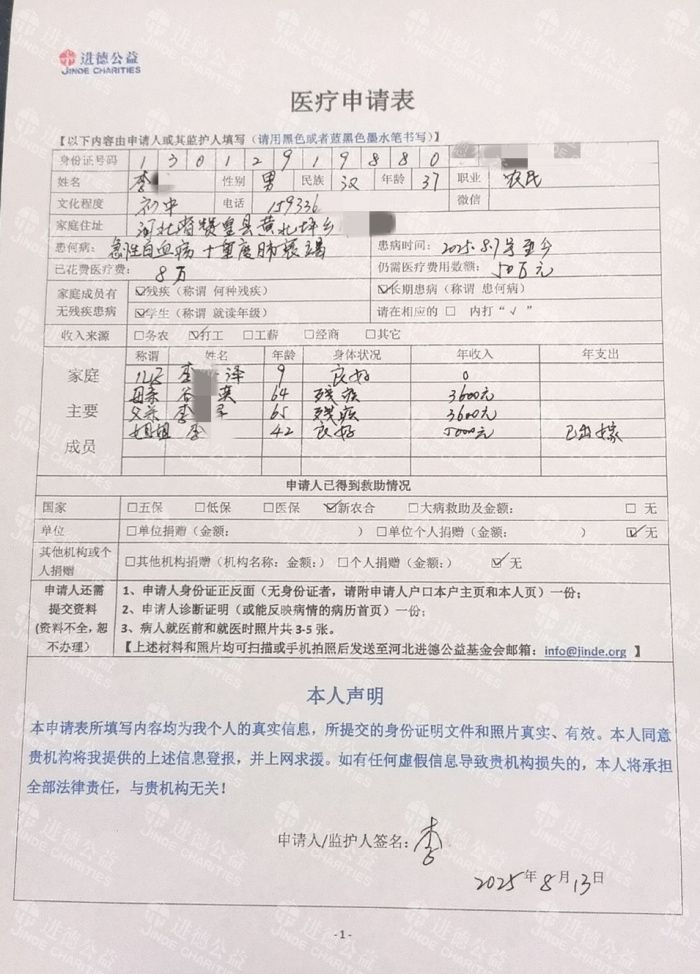 进德公益
JINDE CHARITIES
医疗申请表
【以下内容由申请人或其监护人填写（请用黑色或者蓝黑色墨水笔书写）】
身份证号码 1 3 0 1 2 9 1 9 8 8 0
姓名 李 性别 男 民族 汉 年龄 37 职业 农民
文化程度 初中 电话 159336 微信
家庭住址 河北省赞皇县黄北坪乡
患何病： 急性白血病十重度肺 患病时间： 2025.8.7号至今
已花费医疗费： 8万 仍需医疗费用数额： 50万元
家庭成员有 ☑残疾（称谓 何种残疾） ☑长期患病（称谓 患何病）
无残疾患病 ☑学生（称谓 就读年级） 请在相应的 □ 内打“√”
收入来源 □务农 ☑打工 □工薪 □经商 □其它
称谓 姓名 年龄 身体状况 年收入 年支出
家庭 儿子 李 泽 9 良好 0
母亲 谷 英 64 残疾 3600元
主要 父亲 李 65 残疾 3600元
姐姐 李 42 良好 5000元 已出嫁
成员
申请人已得到救助情况
国家 □五保 □低保 □医保 ☑新农合 □大病救助及金额： □ 无
单位 □单位捐赠（金额： ） □单位个人捐赠（金额： ） ☑无
其他机构或个人捐赠 □其他机构捐赠（机构名称：金额：） □个人捐赠（金额：） ☑ 无
申请人还需 1、申请人身份证正反面（无身份证者，请附申请人户口本户主页和本人页）一份；
提交资料 2、申请人诊断证明（或能反映病情的病历首页）一份；
(资料不全，恕 3、病人就医前和就医时照片共 3-5 张。
不办理） 【上述材料和照片均可扫描或手机拍照后发送至河北进德公益基金会邮箱：info@jinde.org 】
本人声明
本申请表所填写内容均为我个人的真实信息，所提交的身份证明文件和照片真实、有效。本人同意
贵机构将我提供的上述信息登报，并上网求援。如有任何虚假信息导致贵机构损失的，本人将承担
全部法律责任，与贵机构无关！
申请人/监护人签名： 李
2025年8月13日
-1-